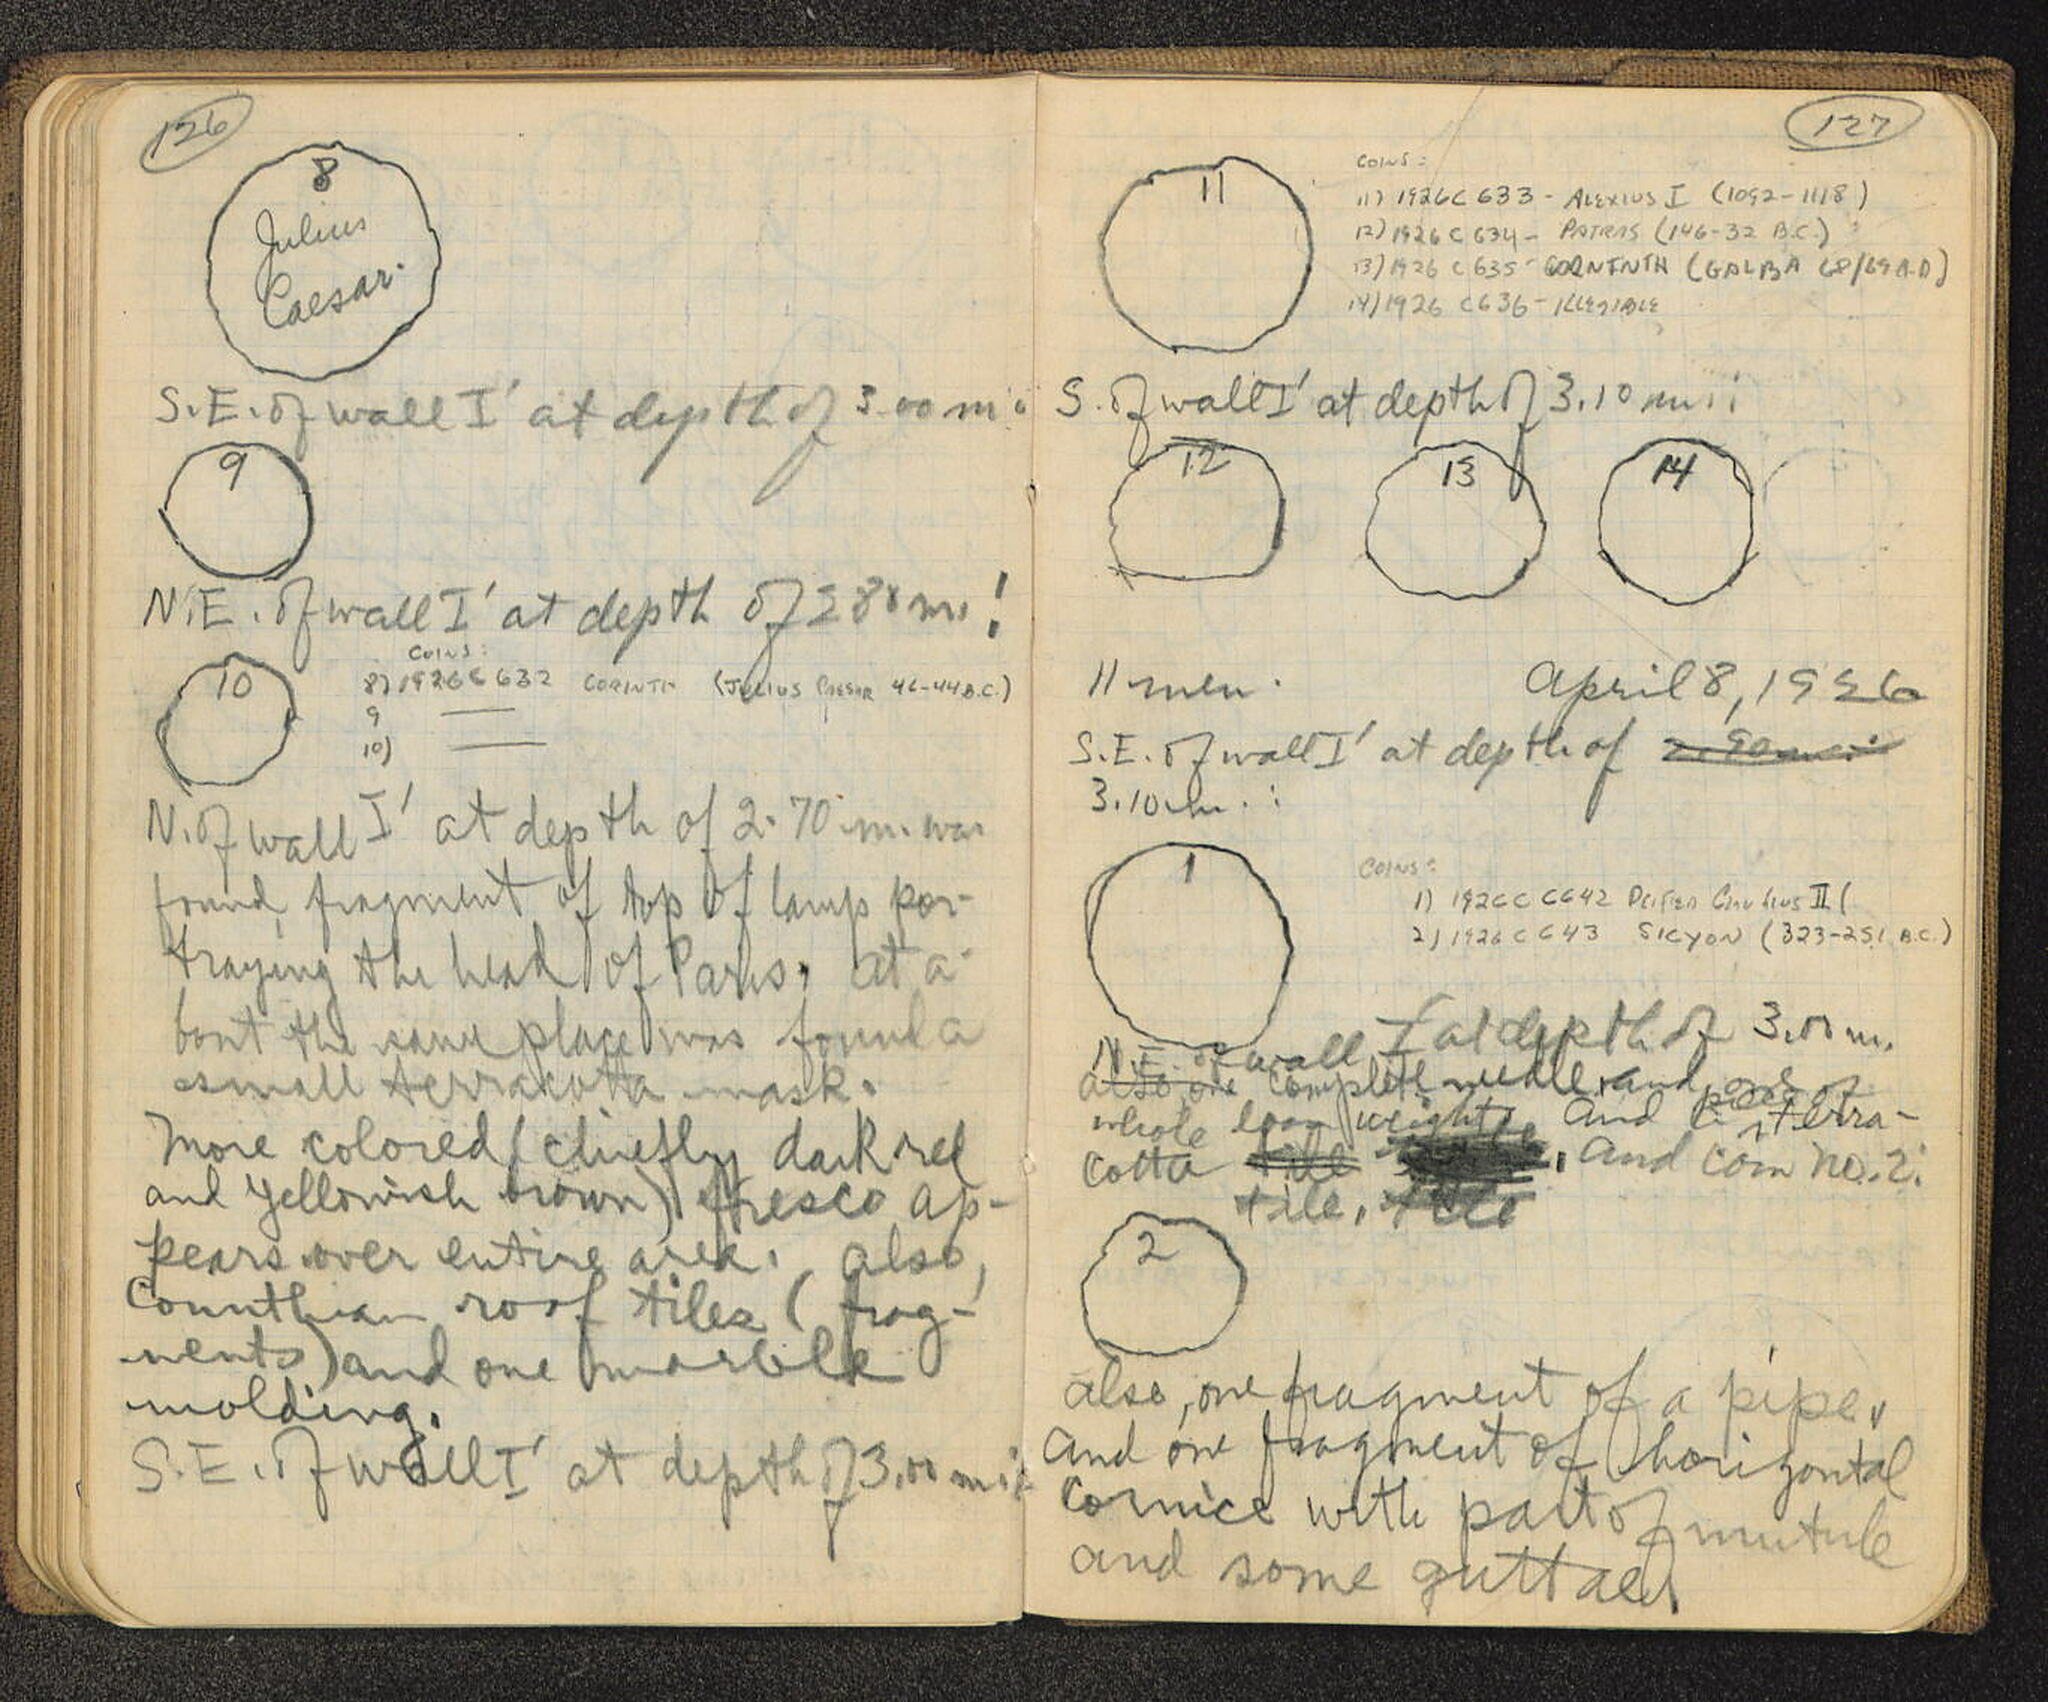 126
8
Julius
Caesar.
S.E. of wall I' at depth of 3.00 m :
9
N.E. of wall I' at depth of 2.80 m. :
10
COINS:
8) 1926 C 632 CORINTH (JULIUS CAESAR 46-44 B.C.)
9
10)
N. of wall I' at depth of 2.70 m. was
found, fragment of top of lamp por-
traying the head of Paris. At a-
bout the same place was found a
small terracotta mask.
More colored (chiefly dark red
and yellowish brown) fresco ap-
pears over entire area. Also,
Corinthian roof tiles (frag-
ments) and one marble
molding.
S.E. of wall I' at depth of 3.00 m :
127
11
COINS:
11) 1926 C 633 - ALEXIUS I (1092-1118)
12) 1926 C 634 - PATRAS (146-32 B.C.)
13) 1926 C 635 - CORINTH (GALBA 68/69 A.D)
14) 1926 C 636 - ILLEGIBLE
S. of wall I' at depth of 3.10 m. :
12 13 14
11 men.
April 8, 1926
S.E. of wall I' at depth of 2.90 m. :
3.10 m. :
1
COINS:
1) 1926 C 642 DEIFIED CLAUDIUS II (
2) 1926 C 643 SICYON (323-251 B.C.)
N.E. of wall I at depth of 3.00 m.
also one complete needle, and one
whole loom weight, and piece of terra-
cotta tile, and coin no. 2:
tile, tile
2
also, one fragment of a pipe,
and one fragment of horizontal
cornice with part of mutule
and some guttae.